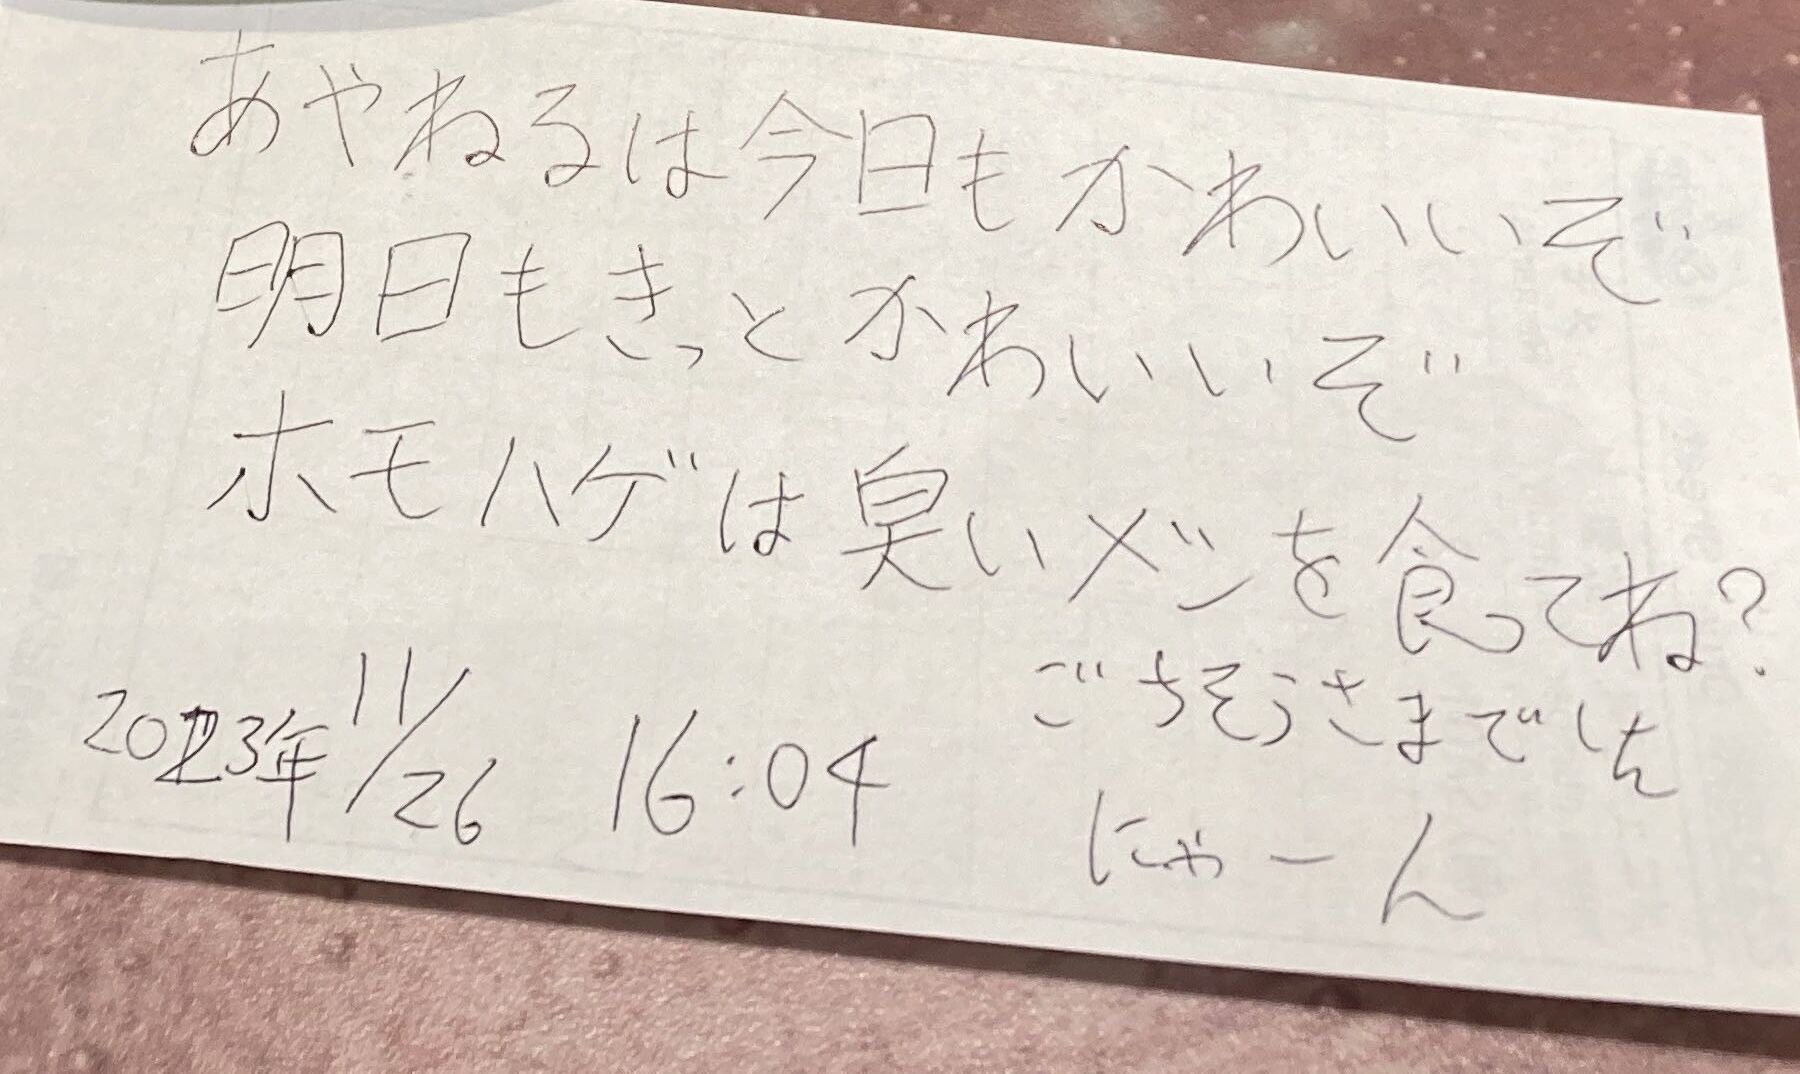 あやねるは今日もかわいいぞ
明日もきっとかわいいぞ
ホモハゲは臭いメシを食ってね?
ごちそうさまでした
にゃーん
2023年11/26 16:04